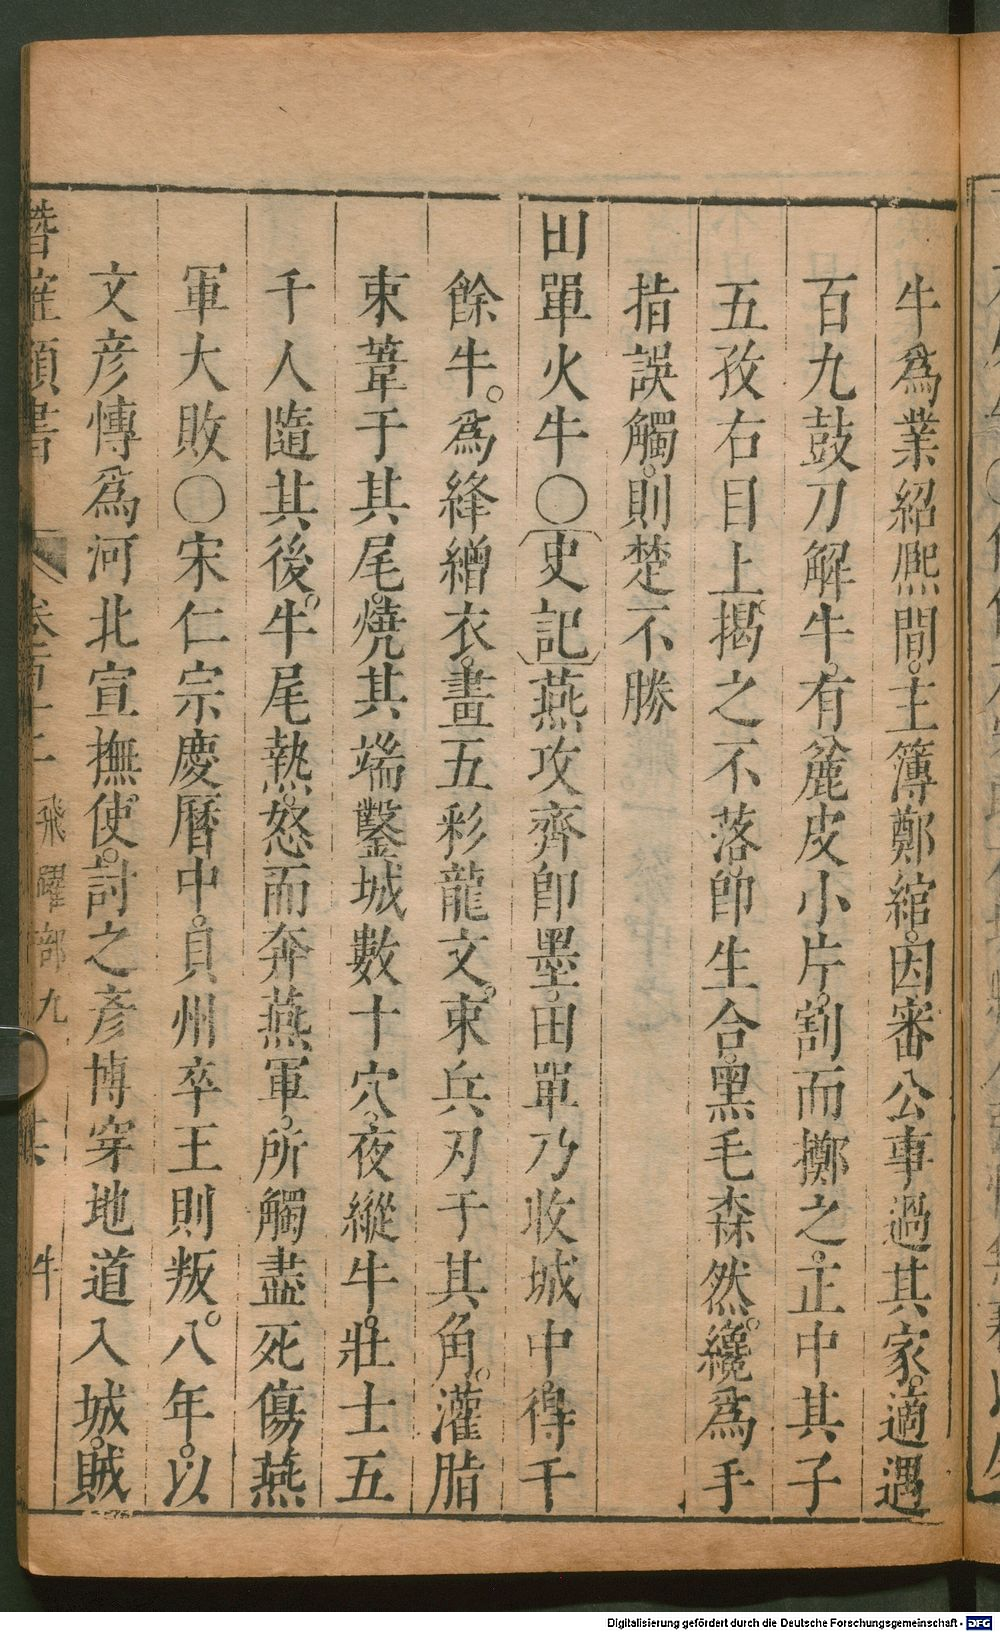 牛爲業紹熈間。主簿鄭綰。因審公事過其家。適遇
百九鼓刀解牛。有麄皮小片。割而擲之。正中其子
五孜右目上。揭之不落。卽生合。黑毛森然。纔爲手
指誤觸。則楚不勝
田單火牛〇史記燕攻齊卽墨。田單乃收城中。得千
餘牛。爲絳繒衣。畫五彩龍文。束兵刃于其角。灌脂
束葦于其尾。燒其端鑿城數十穴。夜縱牛。壯士五
千人隨其後。牛尾熱。怒而奔燕軍。所觸盡死傷燕
軍大敗〇宋仁宗慶曆中。貝州卒王則叛。八年。以
文彥慱爲河北宣撫使。討之彥博穿地道入城。賊
類書 卷百十二 飛躍部九 牛
Digitalisierung gefördert durch die Deutsche Forschungsgemeinschaft - DFG